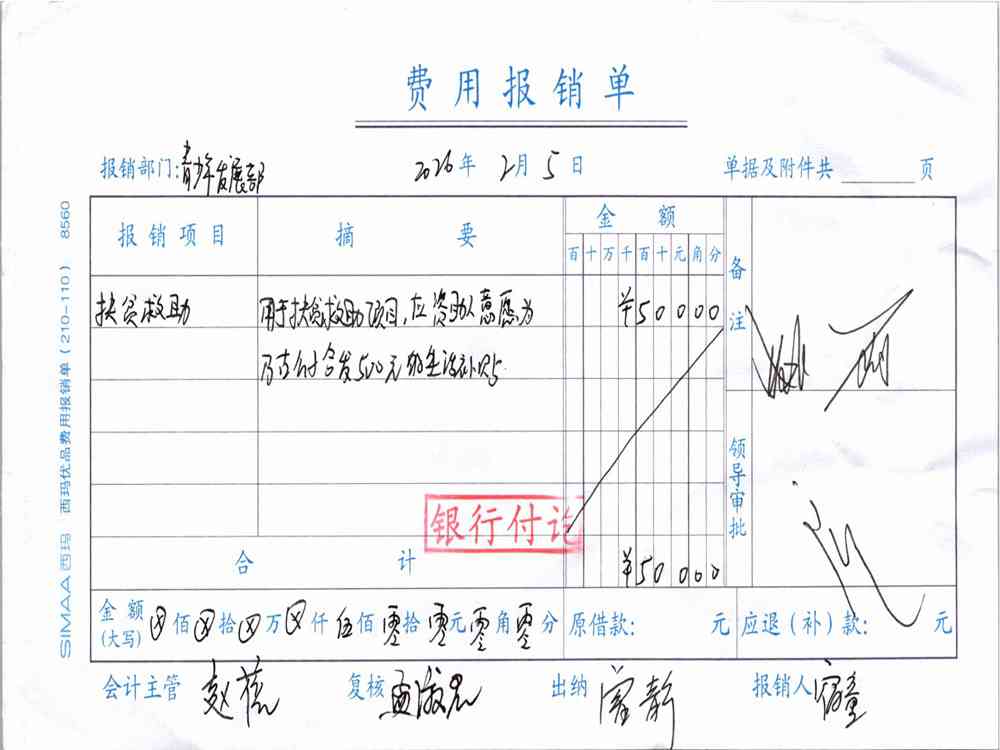 费用报销单
报销部门:青少年发展部 2026年 2月 5日 单据及附件共 页
报销项目 摘要 金额 备注
百十万千百十元角分
扶贫救助 用于扶贫救助项目,应资助人意愿为 ¥50000
500元的生活补贴
银行付讫
领导审批
合计 ¥50000
金额(大写) 佰 拾 万 仟 伍佰零拾零元零角零分 原借款: 元 应退(补)款: 元
会计主管 赵蕊 复核 出纳 报销人
SIMAA西玛 西玛优品费用报销单(210-110) 8560